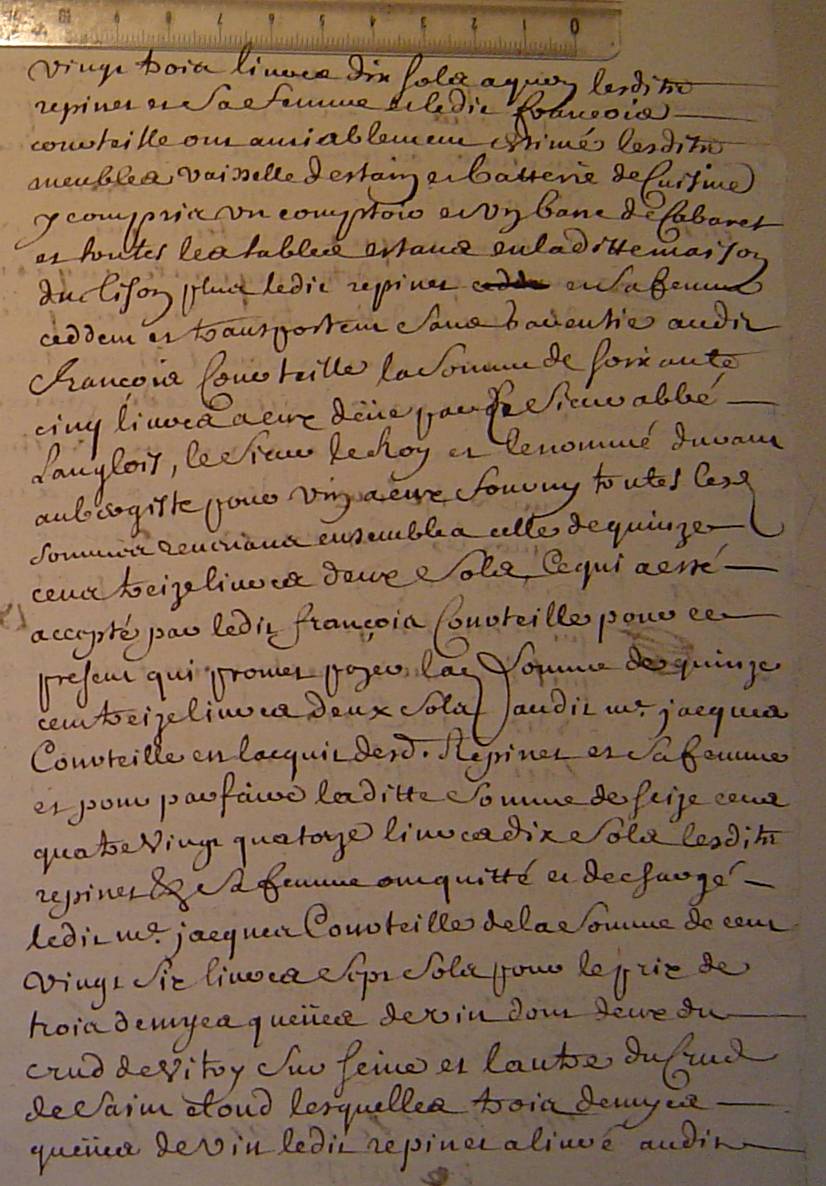 vingt trois livres dix sols a quoy lesdits
repinet et sa femme et ledit françois
couvteille ont amiablement estimé lesdits
meubles vaisselle destain et batterie de Cuisine
y compris un comptoir et un banc de Cabaret
et toutes les tables estans en laditte maison
du lison plus ledit repinet et sa femme
ceddent et transportent sans garentie audit
François Couvteille la somme de soixante
cinq livres a eux deüe par le Sieur abbé
Langlois, le Sieur le Roy et le nommé duvant
aubergiste pour vin a eux fourny toutes les
sommes revenans ensembles a celle de quinze
cent treize livres deux sols, Ce qui a esté
accepté par ledit françois Couvteille pour ce
present qui promet payer lad somme de quinze
cent treize livres deux sols audit me. jacques
Couvteille en lacquit desd. Repinet et sa femme
et pour parfaire laditte somme de seize cens
quatre vingt quatorze livres dix sols lesdits
repinet & sa femme ont quitté et dechargé
ledit me. jacques Couvteille de la somme de cent
vingt six livres sept sols pour le prix de
trois demyes queües de vin dont deux du
crud de Vitry sur seine et lautre du Crud
de saint cloud lesquelles trois demyes
queües de vin ledit repinet a livré audit